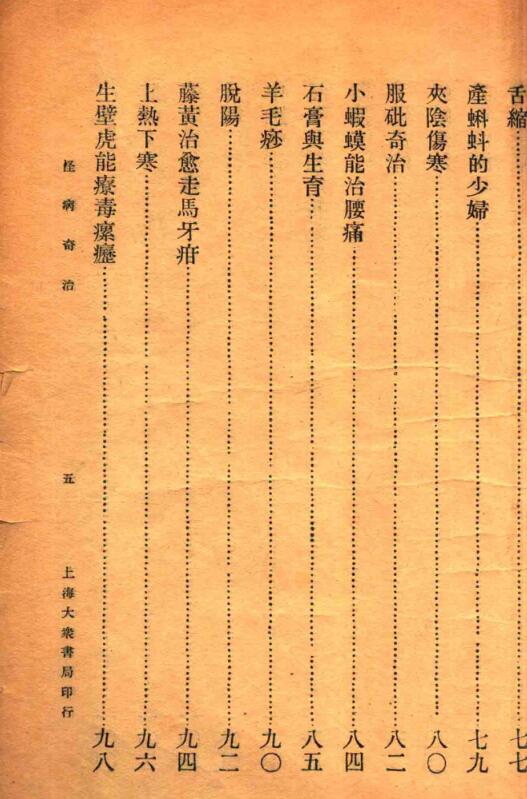 舌縮……七七
產蝌蚪的少婦……七九
夾陰傷寒……八〇
服砒奇治……八二
小蝦蟆能治腰痛……八四
石膏與生育……八五
羊毛痧……九〇
脫陽……九二
藤黃治愈走馬牙疳……九四
上熱下寒……九六
生壁虎能療毒瘰癧……九八
怪病奇治 五 上海大衆書局印行